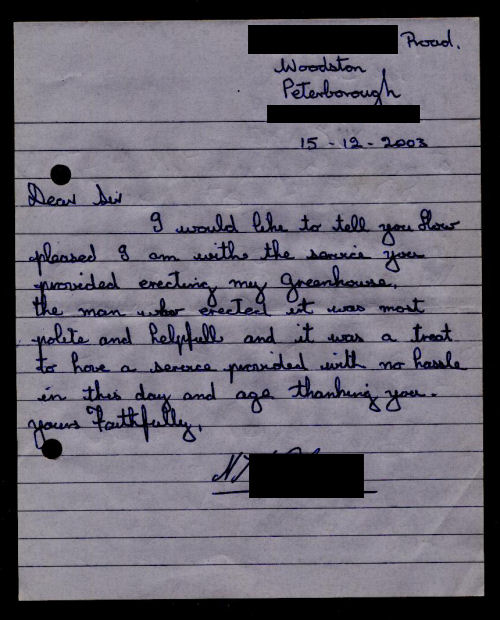 Road.
Woodston
Peterborough
15-12-2003
Dear Sir
I would like to tell you How
pleased I am withe the service you
provided erecting my Greenhouse.
the man who erected it was most
polite and helpfull and it was a treat
to have a service provided with no hassle
in this day and age thanking you.
yours Faithfully,